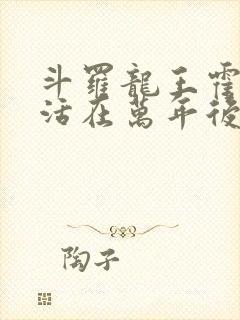 斗羅龍王霍
活在萬年後
陶子